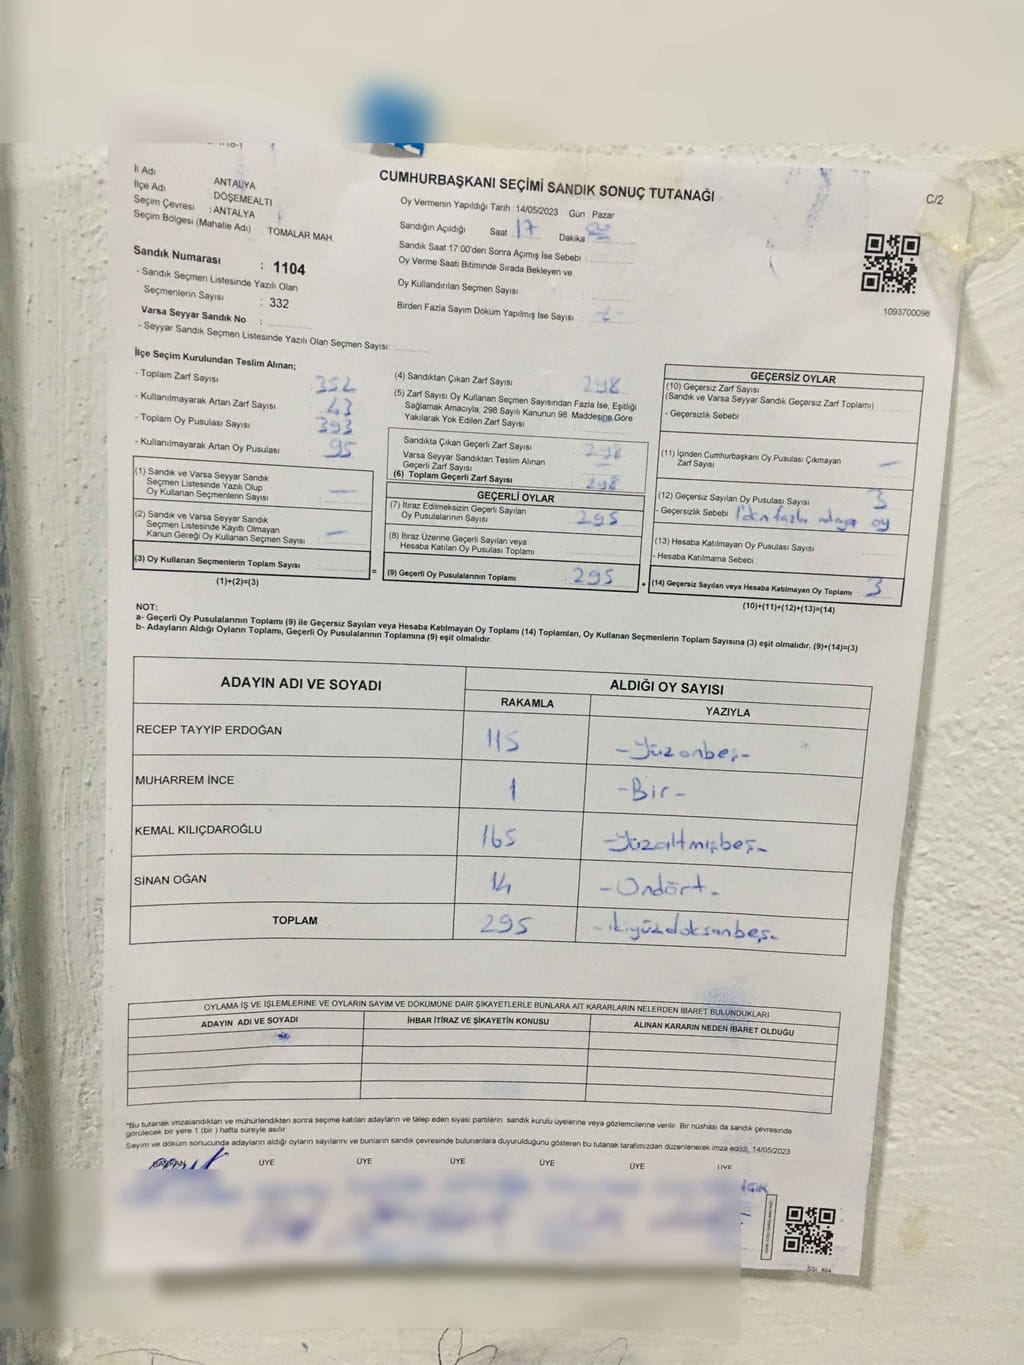 İl Adı
ANTALYA
İlçe Adı
DÖŞEMEALTI
Seçim Çevresi : ANTALYA
Seçim Bölgesi (Mahalle Adı) : TOMALAR MAH.
CUMHURBAŞKANI SEÇİMİ SANDIK SONUÇ TUTANAĞI
C/2
Oy Vermenin Yapıldığı Tarih : 14/05/2023 Gün : Pazar
Sandığın Açıldığı Saat 17 Dakika
Sandık Saat 17:00'den Sonra Açımış İse Sebebi :
Oy Verme Saati Bitiminde Sırada Bekleyen ve
Oy Kullandırılan Seçmen Sayısı
Birden Fazla Sayım Döküm Yapılmış İse Sayısı :
1093700098
Sandık Numarası : 1104
- Sandık Seçmen Listesinde Yazılı Olan
Seçmenlerin Sayısı : 332
Varsa Seyyar Sandık No :
- Seyyar Sandık Seçmen Listesinde Yazılı Olan Seçmen Sayısı:
İlçe Seçim Kurulundan Teslim Alınan;
- Toplam Zarf Sayısı
- Kullanılmayarak Artan Zarf Sayısı : 43
- Toplam Oy Pusulası Sayısı : 393
- Kullanılmayarak Artan Oy Pusulası : 95
(1) Sandık ve Varsa Seyyar Sandık
Seçmen Listesinde Yazılı Olup
Oy Kullanan Seçmenlerin Sayısı —
(2) Sandık ve Varsa Seyyar Sandık
Seçmen Listesinde Kayıtlı Olmayan
Kanun Gereği Oy Kullanan Seçmen Sayısı —
(3) Oy Kullanan Seçmenlerin Toplam Sayısı
(1)+(2)=(3)
(4) Sandıktan Çıkan Zarf Sayısı : 298
(5) Zarf Sayısı Oy Kullanan Seçmen Sayısından Fazla İse, Eşitliği
Sağlamak Amacıyla, 298 Sayılı Kanunun 98. Maddesine Göre
Yakılarak Yok Edilen Zarf Sayısı
Sandıkta Çıkan Geçerli Zarf Sayısı : 298
Varsa Seyyar Sandıktan Teslim Alınan
Geçerli Zarf Sayısı —
(6) Toplam Geçerli Zarf Sayısı : 298
GEÇERLİ OYLAR
(7) İtiraz Edilmeksizin Geçerli Sayılan
Oy Pusulalarının Sayısı : 295
(8) İtiraz Üzerine Geçerli Sayılan veya
Hesaba Katılan Oy Pusulası Toplamı
(9) Geçerli Oy Pusulalarının Toplamı : 295
GEÇERSİZ OYLAR
(10) Geçersiz Zarf Sayısı
(Sandık ve Varsa Seyyar Sandık Geçersiz Zarf Toplamı)
- Geçersizlik Sebebi
(11) İçinden Cumhurbaşkanı Oy Pusulası Çıkmayan
Zarf Sayısı —
(12) Geçersiz Sayılan Oy Pusulası Sayısı 3
- Geçersizlik Sebebi 1'den fazla adaya oy
(13) Hesaba Katılmayan Oy Pusulası Sayısı
- Hesaba Katılmama Sebebi
(14) Geçersiz Sayılan veya Hesaba Katılmayan Oy Toplamı : 3
(10)+(11)+(12)+(13)=(14)
NOT:
a- Geçerli Oy Pusulalarının Toplamı (9) ile Geçersiz Sayılan veya Hesaba Katılmayan Oy Toplamı (14) Toplamları, Oy Kullanan Seçmenlerin Toplam Sayısına (3) eşit olmalıdır. (9)+(14)=(3)
b- Adayların Aldığı Oyların Toplamı, Geçerli Oy Pusulalarının Toplamına (9) eşit olmalıdır.
ADAYIN ADI VE SOYADI
ALDIĞI OY SAYISI
RAKAMLA YAZIYLA
RECEP TAYYİP ERDOĞAN 115 -Yüzonbeş-
MUHARREM İNCE 1 -Bir-
KEMAL KILIÇDAROĞLU 165 -Yüzaltmışbeş-
SİNAN OĞAN 14 -Ondört-
TOPLAM 295 -ikiyüzdoksanbeş-
OYLAMA İŞ VE İŞLEMLERİNE VE OYLARIN SAYIM VE DÖKÜMÜNE DAİR ŞİKAYETLERLE BUNLARA AİT KARARLARIN NELERDEN İBARET BULUNDUKLARI
ADAYIN ADI VE SOYADI İHBAR İTİRAZ VE ŞİKAYETİN KONUSU ALINAN KARARIN NEDEN İBARET OLDUĞU
*Bu tutanak imzalandıktan ve mühürlendikten sonra seçime katılan adayların ve talep eden siyasi partilerin sandık kurulu üyelerine veya gözlemcilerine verilir. Bir nüshası da sandık çevresinde
görülecek bir yere 1 (bir) hafta süreyle asılır.
Sayım ve döküm sonucunda adayların aldığı oyların sayılarını ve bunların sandık çevresinde bulunanlara duyurulduğunu gösteren bu tutanak tarafımızdan düzenlenerek imza edildi, 14/05/2023
BAŞKAN ÜYE ÜYE ÜYE ÜYE ÜYE ÜYE